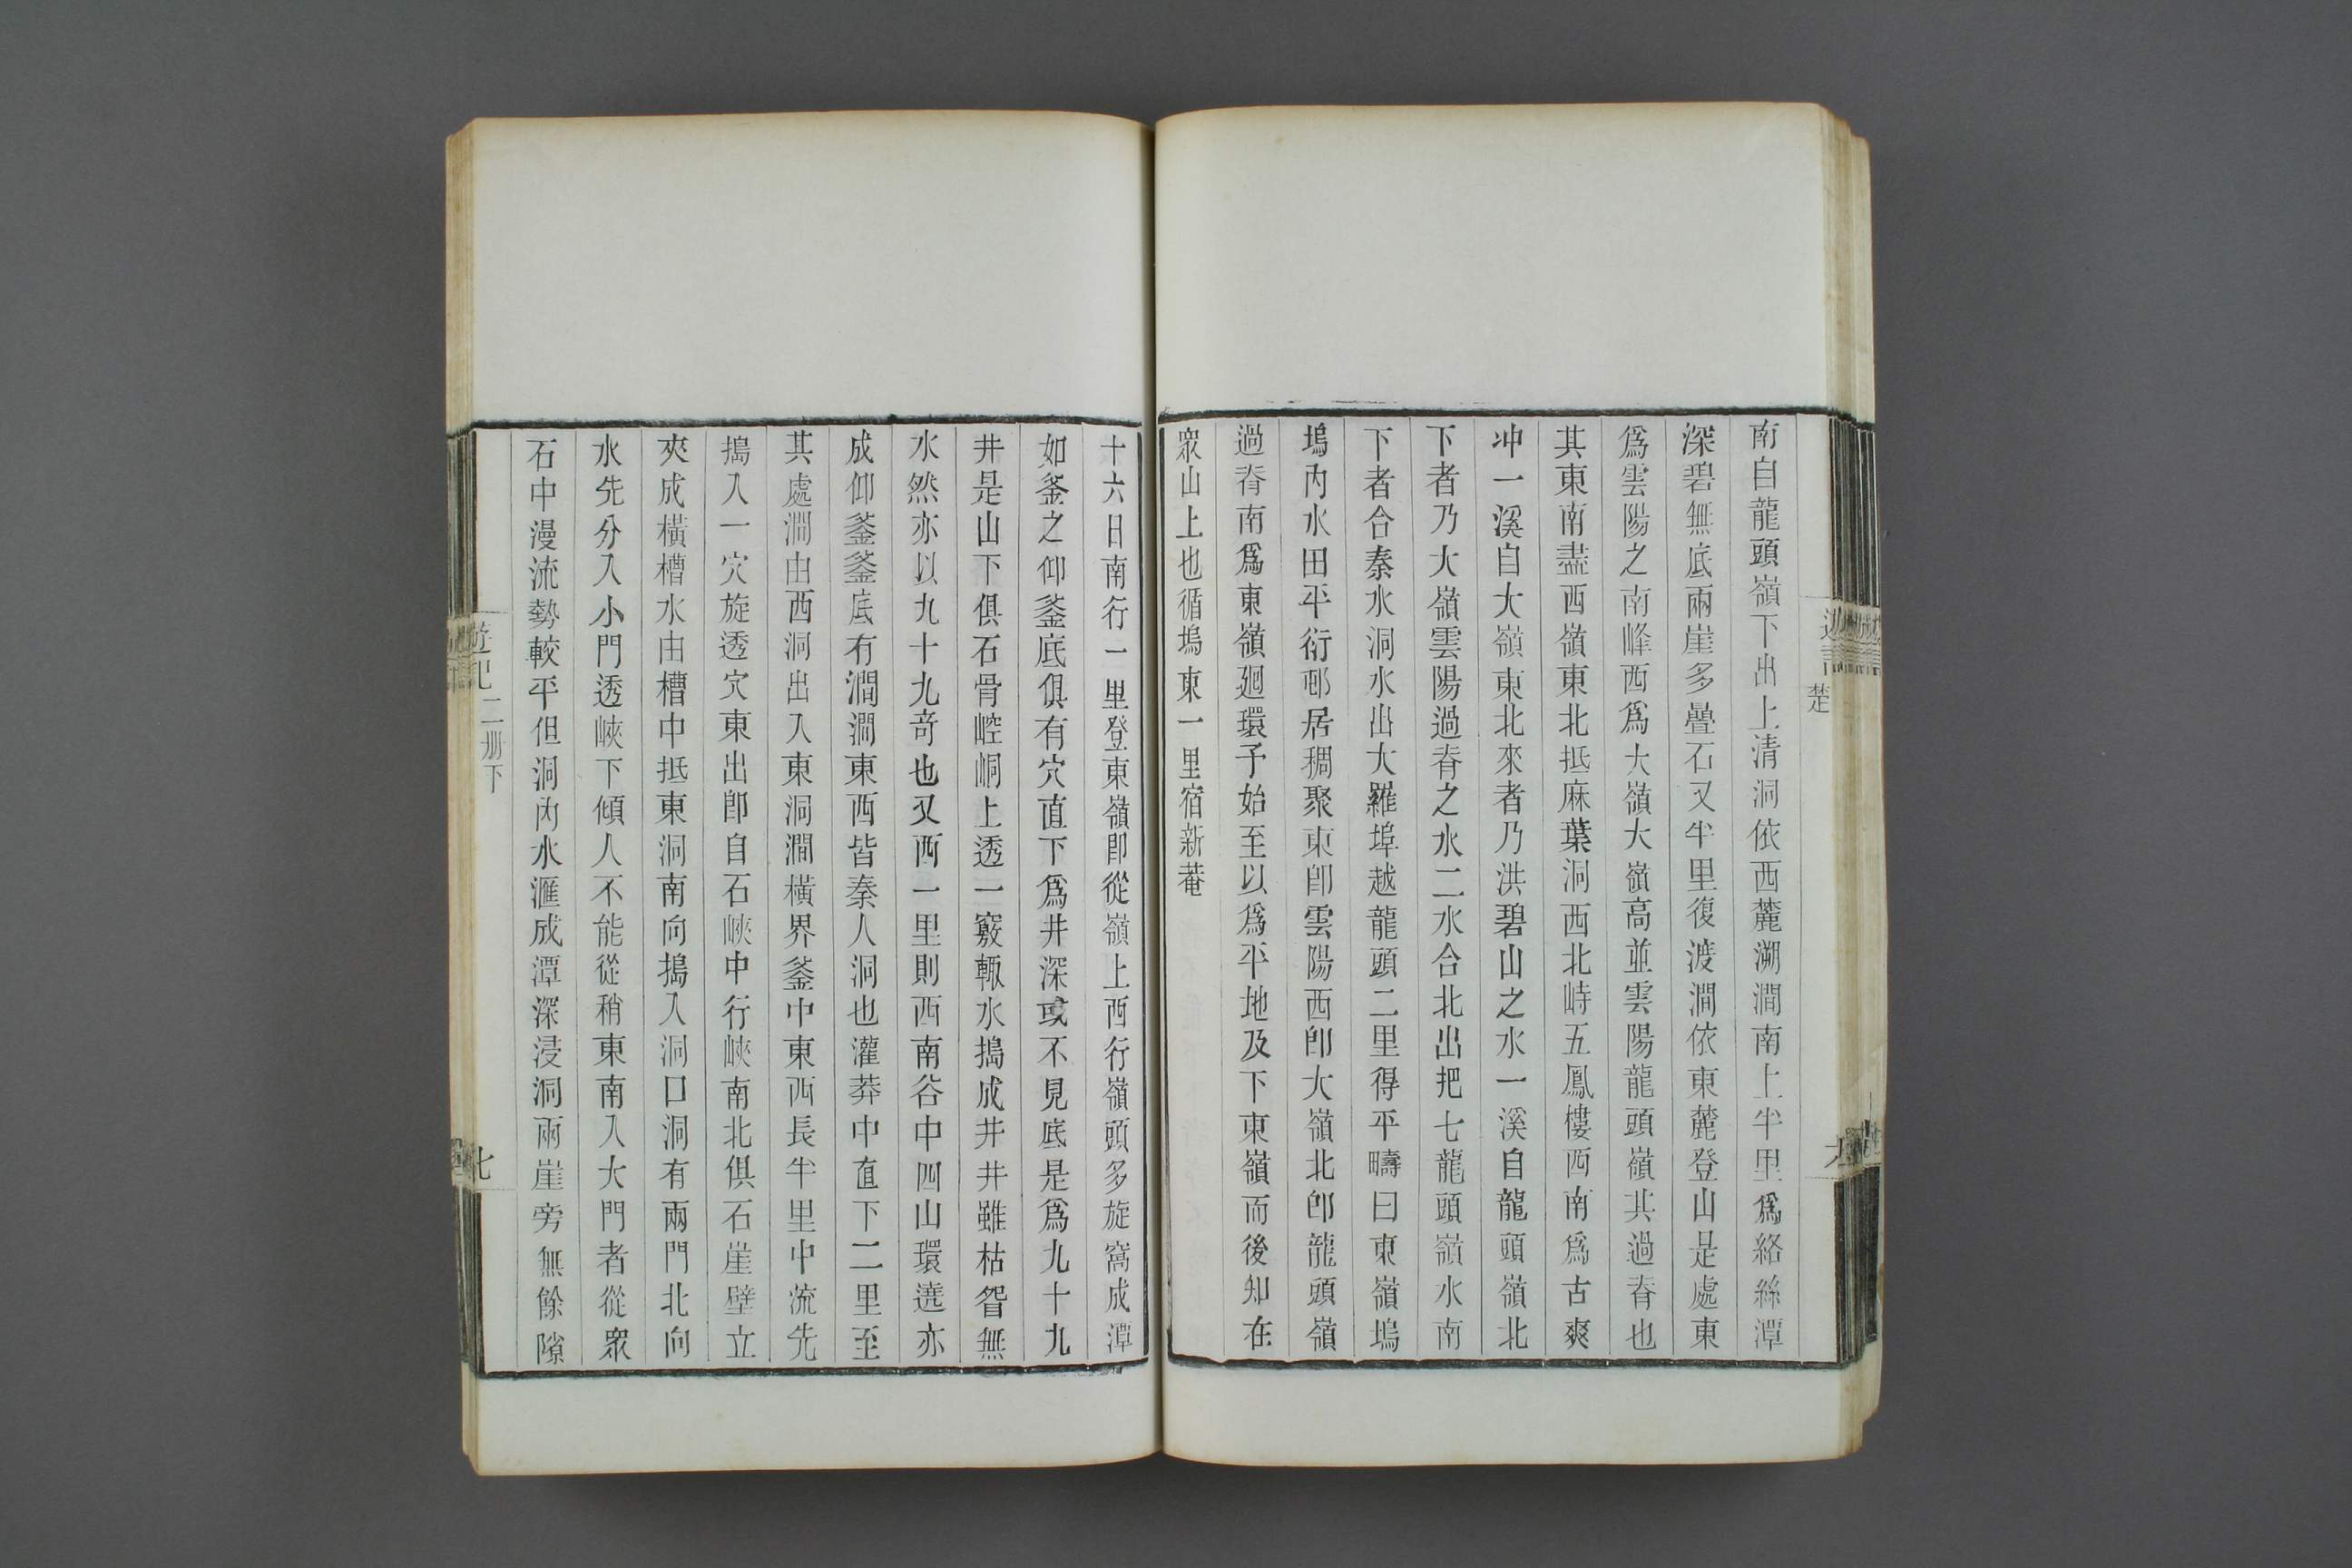 南自龍頭嶺下出上清洞依西麓溯澗南上半里爲絡絲潭
深碧無底兩崖多疊石又半里復渡澗依東麓登山是處東
爲雲陽之南峰西爲大嶺大嶺高並雲陽龍頭嶺其過脊也
其東南盡西嶺東北抵麻葉洞西北峙五鳳樓西南爲古爽
冲一溪自大嶺東北來者乃洪碧山之水一溪自龍頭嶺北
下者乃大嶺雲陽過脊之水二水合北出把七龍頭嶺水南
下者合秦水洞水出大羅埠越龍頭二里得平疇曰東嶺塢
塢內水田平衍邨居稠聚東卽雲陽西卽大嶺北卽龍頭嶺
過脊南爲東嶺廻環予始至以爲平地及下東嶺而後知在
衆山上也循塢東一里宿新菴
楚
十六日南行一里登東嶺卽從嶺上西行嶺頭多旋窩成潭
如釜之仰釜底俱有穴直下爲井深或不見底是爲九十九
井是山下俱石骨崆峒上透一竅輙水搗成井井雖枯眢無
水然亦以九十九竒也又西一里則西南谷中四山環遶亦
成仰釜釜底有澗澗東西皆秦人洞也灌莽中直下二里至
其處澗由西洞出入東洞澗橫界釜中東西長半里中流先
搗入一穴旋透穴東出卽自石峽中行峽南北俱石崖壁立
夾成橫槽水由槽中抵東洞南向搗入洞口洞有兩門北向
水先分入小門透峽下傾人不能從稍東南入大門者從衆
石中漫流勢較平但洞內水滙成潭深浸洞兩崖旁無餘隙
遊記二册下